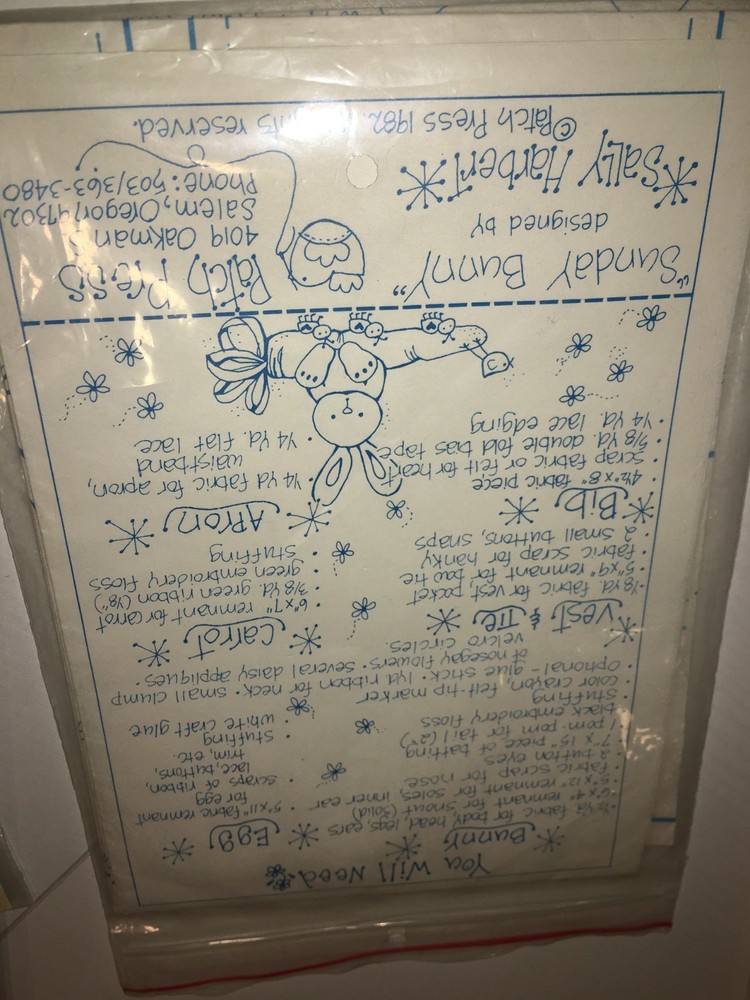 You Will Need
Bunny
½ yd. fabric for body, head, legs, ears
6"x 4" remnant for snout (solid)
5"x 12" remnant for soles, inner ear
fabric scrap for nose
2 button eyes
7" x 15" piece of batting
1 pom-pom for tail (2")
black embroidery floss
stuffing
color crayon, felt-tip marker
Optional - glue stick • 1yd. ribbon for neck • small clump
of nosegay flowers • several daisy appliques •
velcro circles
Egg
5"x11" fabric remnant
for egg
scraps of ribbon,
lace, buttons,
trim, etc.
stuffing
white craft glue
Vest & Tie
⅛ yd. fabric for vest, pocket
5"x9" remnant for bow tie
fabric scrap for hanky
2 small buttons, snaps
Carrot
6"x7" remnant for carrot
⅜ yd. green ribbon (⅛")
green embroidery floss
stuffing
Bib
4½"x 8" fabric piece
scrap fabric or felt for heart
⅝ yd. double fold bias tape
¼ yd. lace edging
Apron
¼ yd fabric for apron,
waistband
¼ yd. flat lace
"Sunday Bunny"
designed by
Sally Harbert
©Patch Press 1982. reserved.
Patch Press
4019 Oakman S
Salem, Oregon 97302
Phone: 503/363-3480